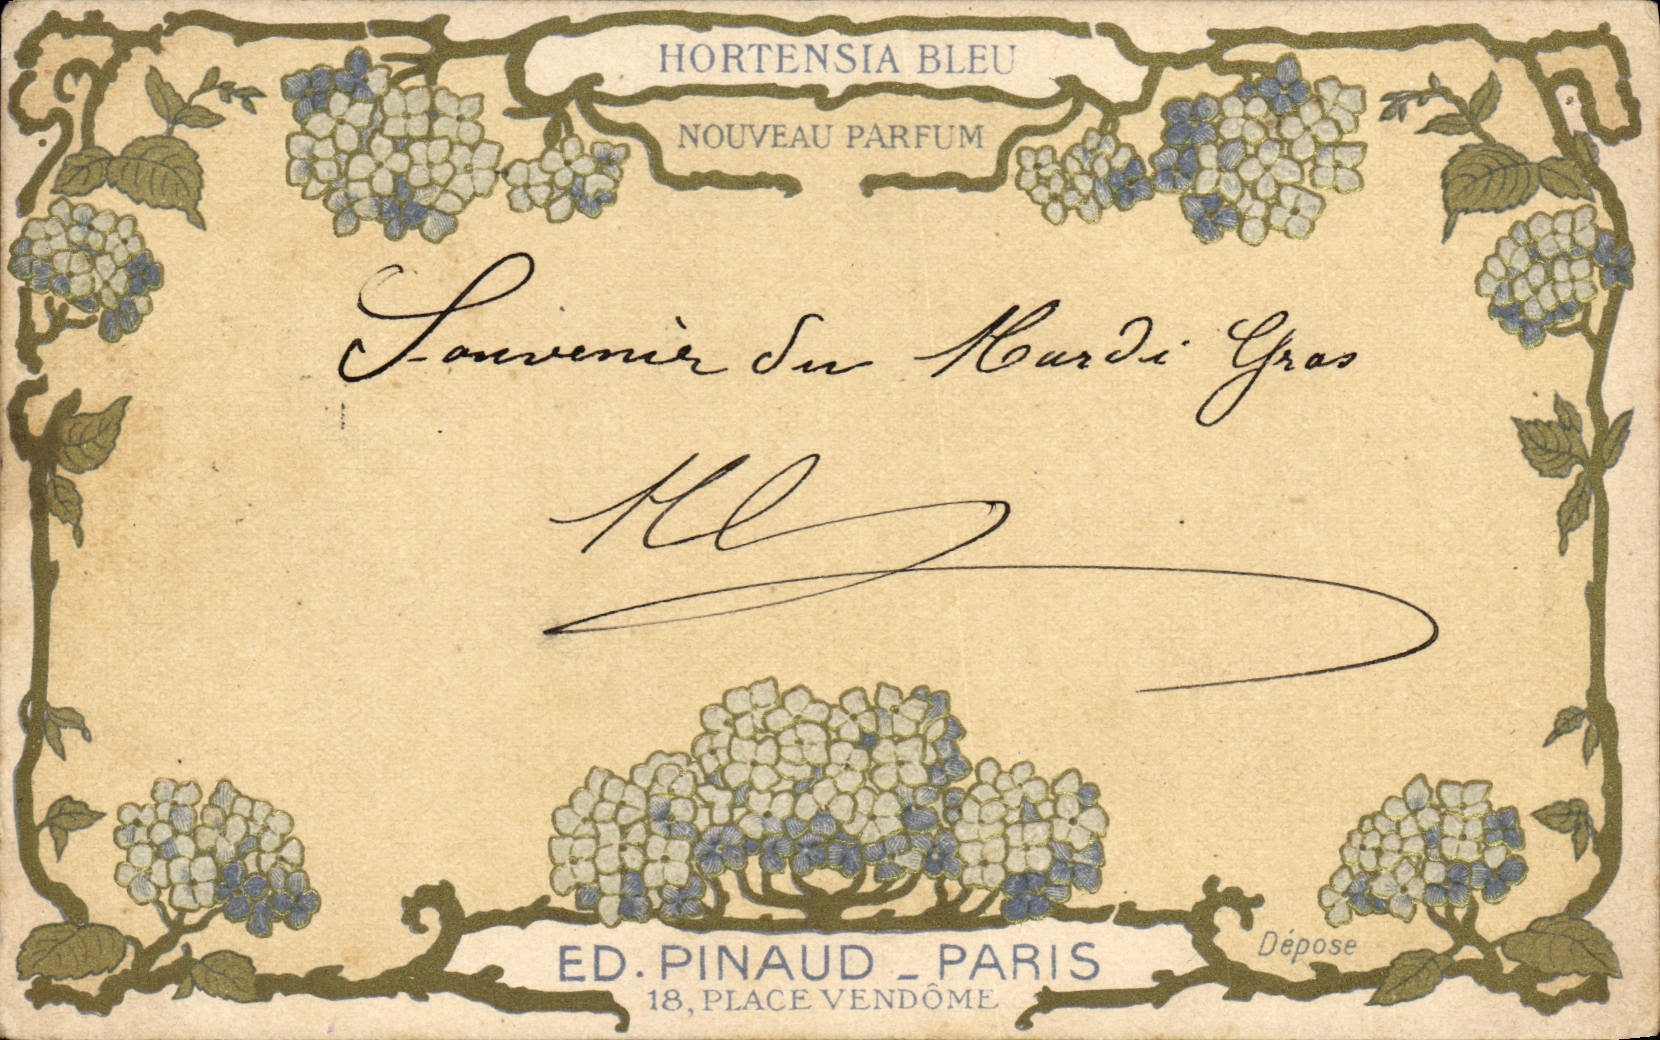 HORTENSIA BLEU
NOUVEAU PARFUM
Souvenir du Mardi Gras
ED. PINAUD _ PARIS
18, PLACE VENDÔME
Dépose